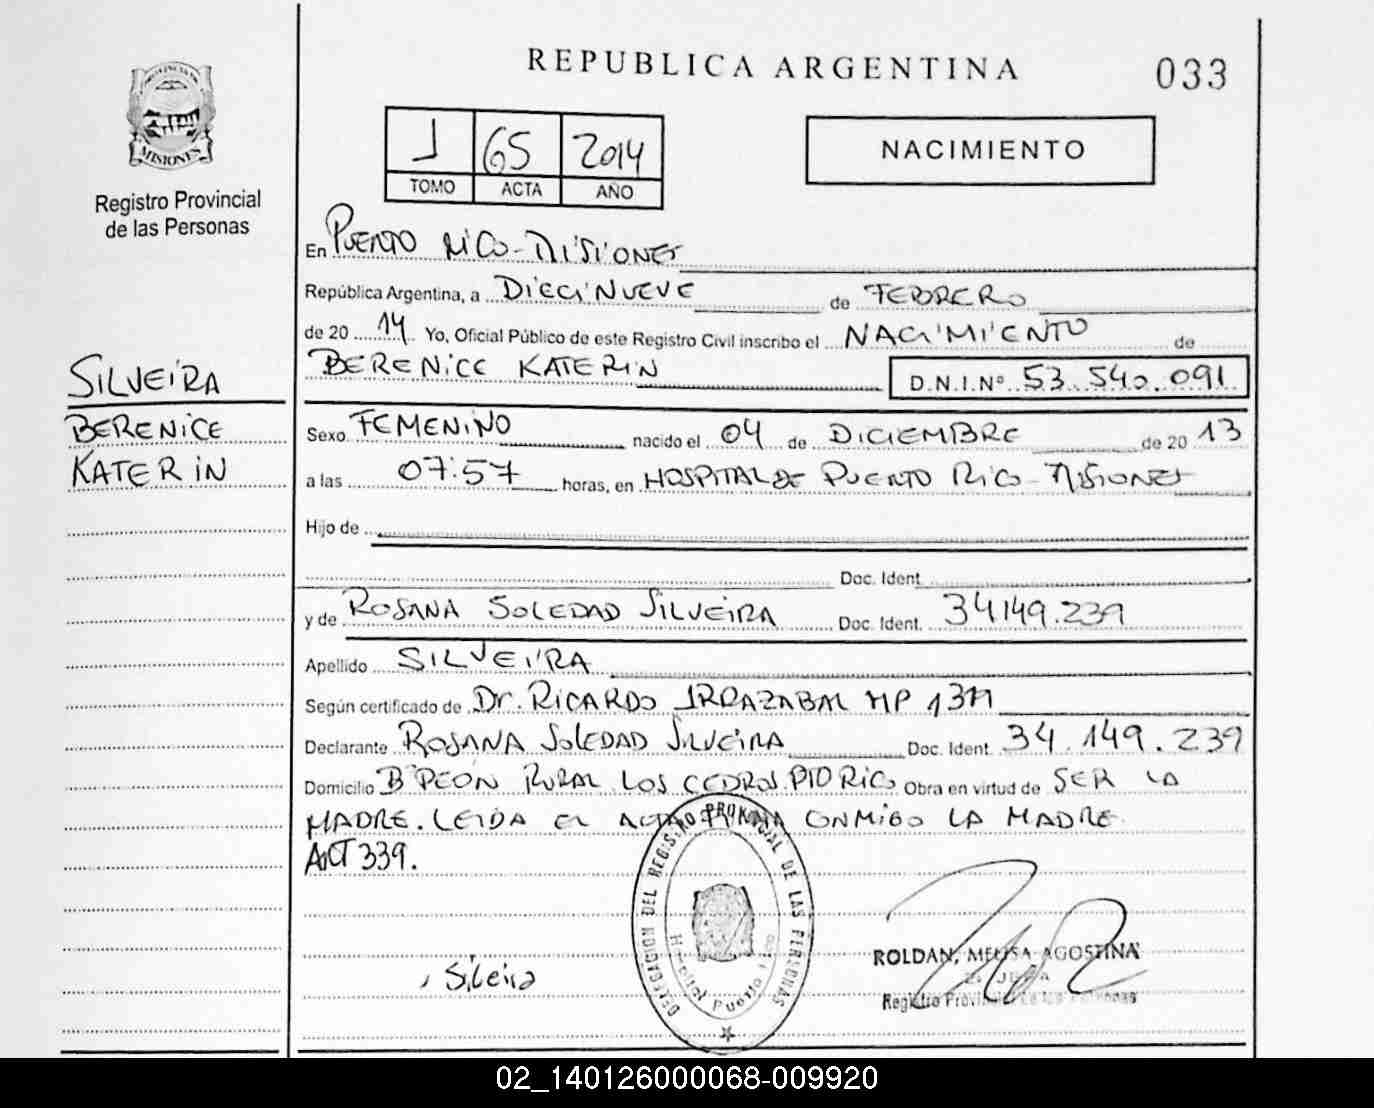 REPUBLICA ARGENTINA
033
PROVINCIA DE
MISIONES
Registro Provincial
de las Personas
1 65 2014
TOMO ACTA AÑO
NACIMIENTO
En PUERTO RICO - MISIONES
República Argentina, a DIECINUEVE de FEBRERO
de 20 14 Yo, Oficial Público de este Registro Civil inscribo el NACIMIENTO de
BERENICE KATERIN D.N.I.Nº 53.540.091
SILVEIRA
BERENICE
KATERIN
Sexo FEMENINO nacido el 04 de DICIEMBRE de 20 13
a las 07:57 horas, en HOSPITAL DE PUERTO RICO - MISIONES
Hijo de
Doc. Ident.
y de ROSANA SOLEDAD SILVEIRA Doc. Ident. 34149.239
Apellido SILVEIRA
Según certificado de Dr. RICARDO IRRAZABAL MP
Declarante ROSANA SOLEDAD SILVEIRA Doc. Ident. 34.149.239
Domicilio Bº PEON RURAL LOS CEDROS. PTO RICO Obra en virtud de SER LA
MADRE. LEIDA EL ACTA FIRMA CONMIGO LA MADRE.
ACT 339.
DELEGACION DEL REGISTRO PROVINCIAL DE LAS PERSONAS
Hospital Puerto Rico
ROLDAN, MELISA AGOSTINA
Registro Provincial de las Personas
02_140126000068-009920